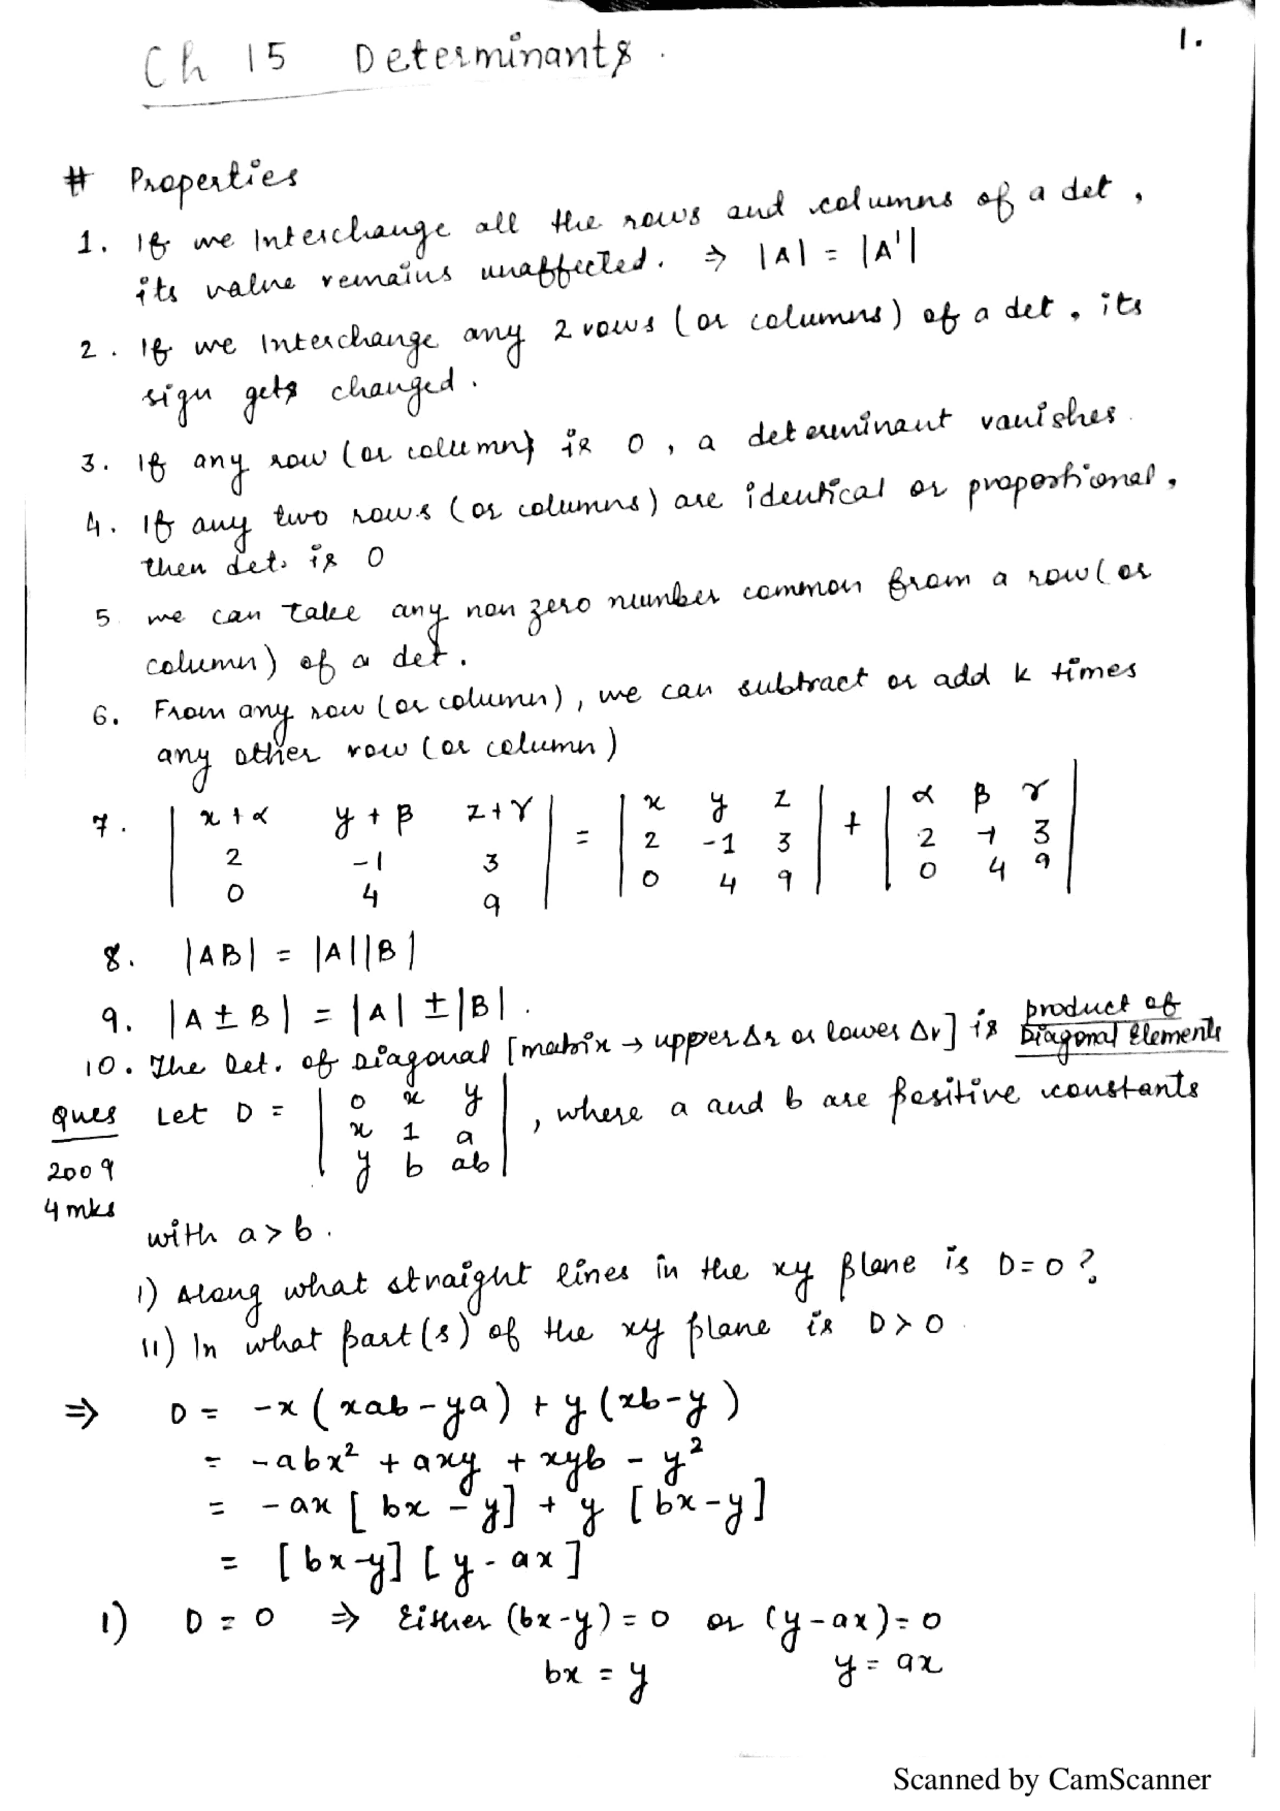 Ch 15 Determinants.
1.
# Properties
1. If we Interchange all the rows and columns of a det,
its value remains unaffected. ⇒ |A| = |A'|
2. If we Interchange any 2 rows (or columns) of a det, its
sign gets changed.
3. If any row (or column) is 0, a determinant vanishes.
4. If any two rows (or columns) are identical or proportional,
then det. is 0
5. we can take any non zero number common from a row (or
column) of a det.
6. From any row (or column), we can subtract or add k times
any other row (or column)
7. | x+α y+β z+γ | = | x y z | + | α β γ |
| 2 -1 3 | | 2 -1 3 | | 2 -1 3 |
| 0 4 9 | | 0 4 9 | | 0 4 9 |
8. |AB| = |A||B|
9. |A ± B| = |A| ± |B|.
10. The Det. of Diagonal [matrix → upper Δr or lower Δr] is product of
Diagonal Elements
Ques Let D = | 0 x y |
| x 1 a | , where a and b are positive constants
| y b ab |
2009
4 mks
with a > b.
I) Along what straight lines in the xy plane is D=0?
II) In what part(s) of the xy plane is D > 0
⇒ D = -x (xab - ya) + y (xb - y)
= -abx² + axy + xyb - y²
= -ax [bx - y] + y [bx - y]
= [bx-y] [y - ax]
1) D = 0 ⇒ Either (bx-y) = 0 or (y-ax) = 0
bx = y y = ax
Scanned by CamScanner